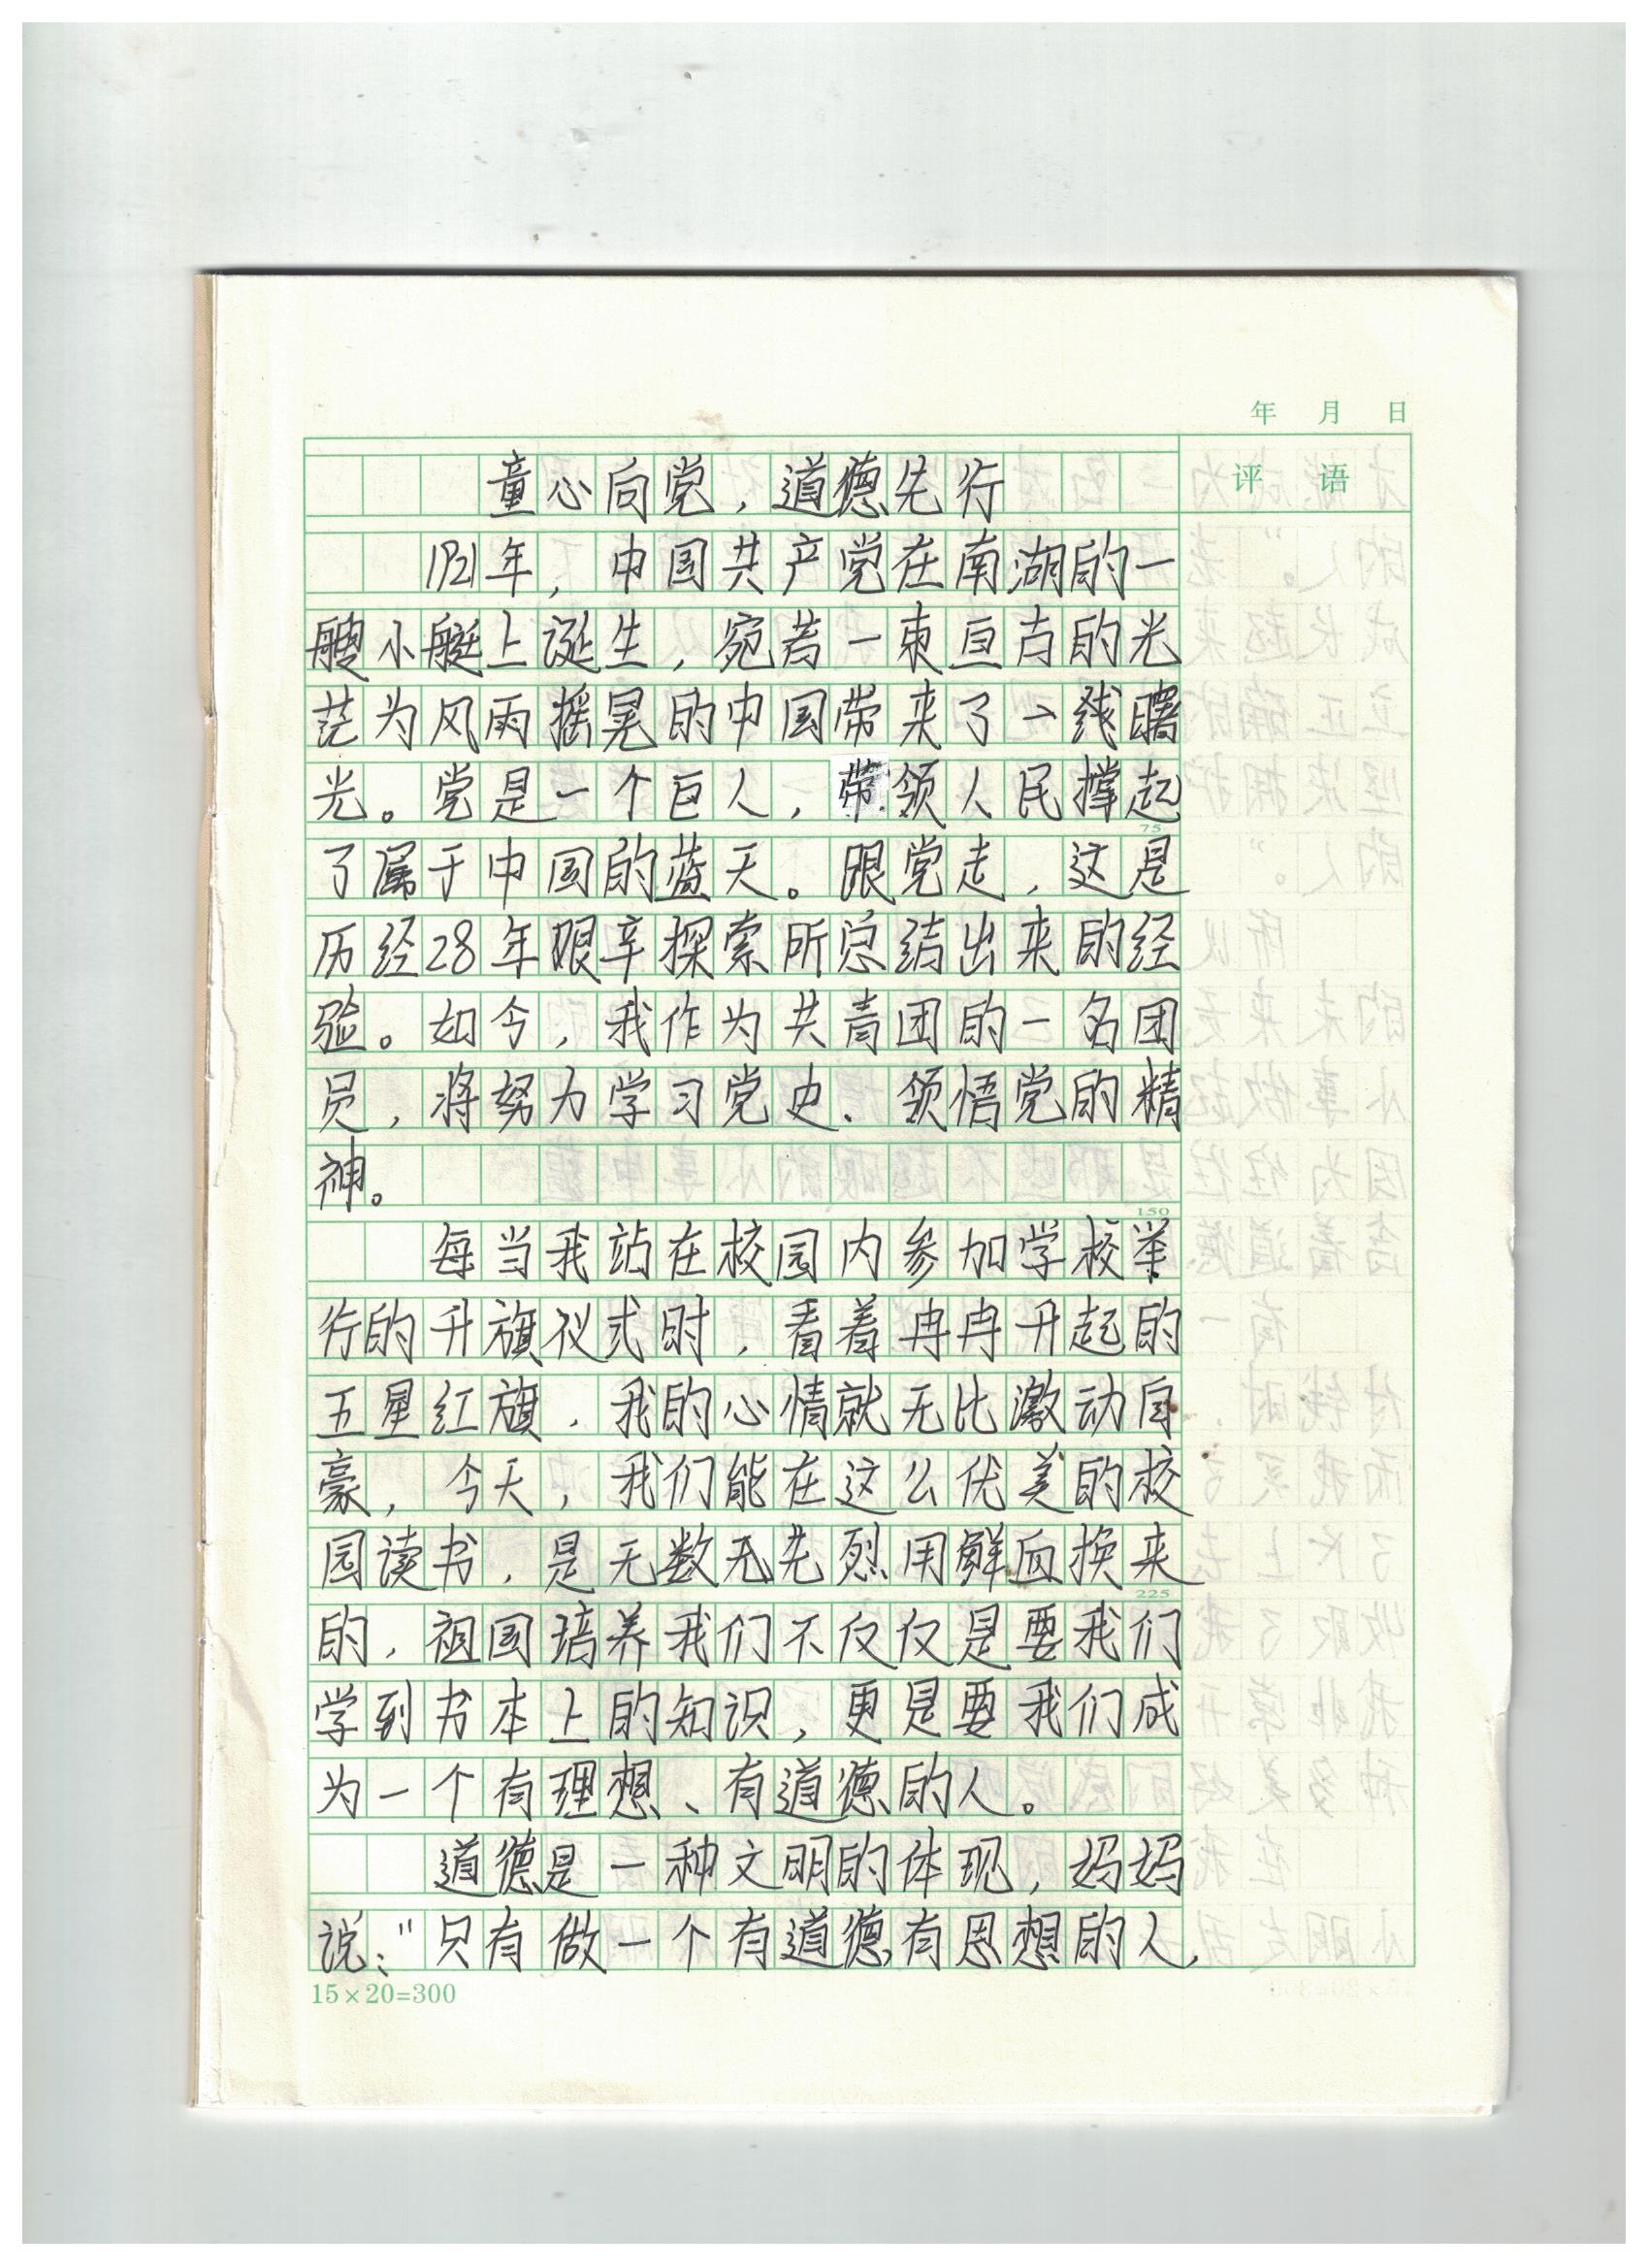 年 月 日
评 语
童心向党，道德先行
1921年，中国共产党在南湖的一
艘小艇上诞生，宛若一束亘古的光
芒为风雨摇晃的中国带来了一线曙
光。党是一个巨人，带领人民撑起
75
了属于中国的蓝天。跟党走，这是
历经28年艰辛探索所总结出来的经
验。如今，我作为共青团的一名团
员，将努力学习党史、领悟党的精
神。
150
每当我站在校园内参加学校举
行的升旗仪式时，看着冉冉升起的
五星红旗，我的心情就无比激动自
豪，今天，我们能在这么优美的校
园读书，是无数无先烈用鲜血换来
225
的，祖国培养我们不仅仅是要我们
学到书本上的知识，更是要我们成
为一个有理想、有道德的人。
道德是一种文明的体现，妈妈
说：“只有做一个有道德，有思想的人，
15×20=300